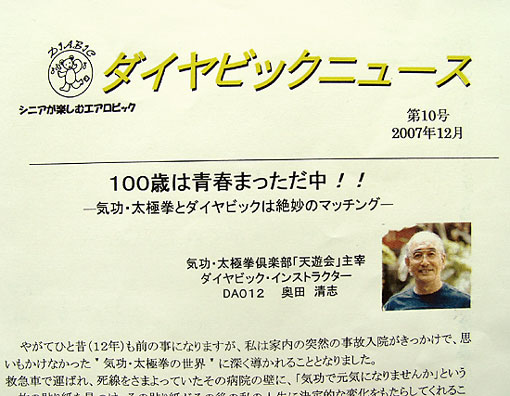 DIABIC
ダイヤビックニュース
シニアが楽しむエアロビック
第10号
2007年12月
100歳は青春まっただ中!!
―気功・太極拳とダイヤビックは絶妙のマッチング―
気功・太極拳倶楽部「天遊会」主宰
ダイヤビック・インストラクター
DA012 奥田 清志
やがてひと昔(12年)も前の事になりますが、私は家内の突然の事故入院がきっかけで、思
いもかけなかった"気功・太極拳の世界"に深く導かれることとなりました。
救急車で運ばれ、死線をさまよっていたその病院の壁に、「気功で元気になりませんか」という